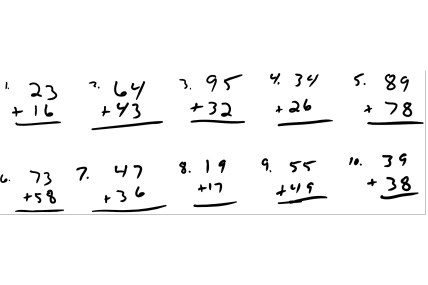 1. 23 2. 64 3. 95 4. 34 5. 89
+16 +43 +32 +26 +78
6. 73 7. 47 8. 19 9. 55 10. 39
+58 +36 +17 +49 +38